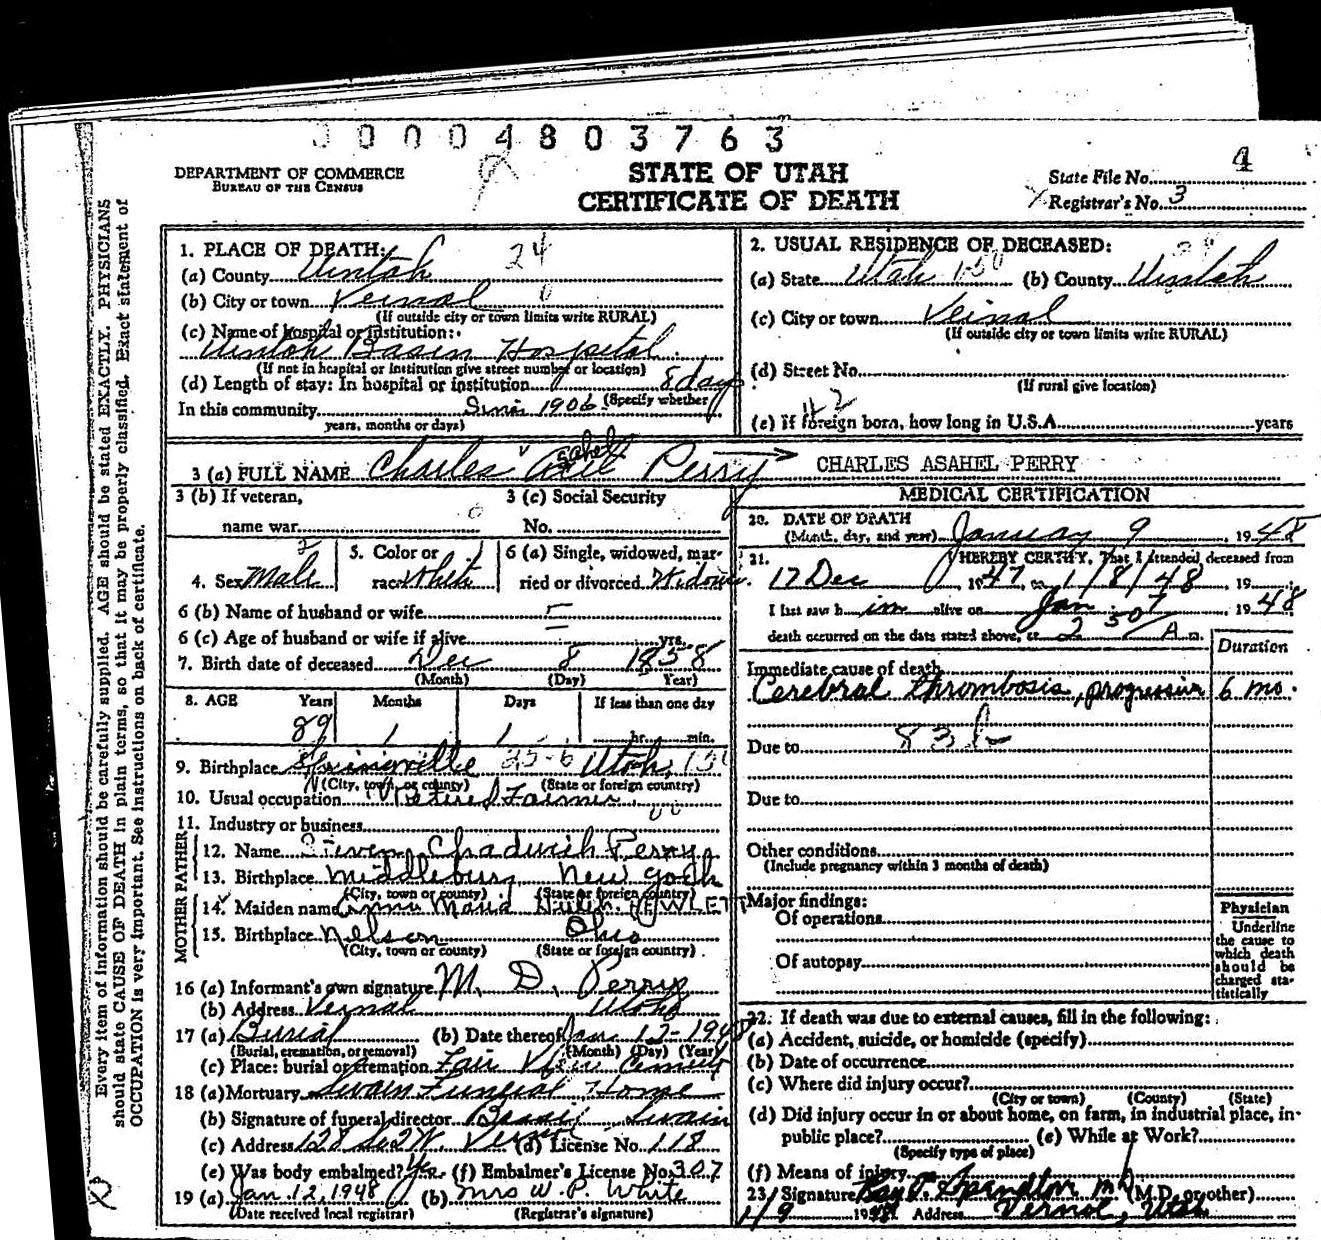 00004803763
DEPARTMENT OF COMMERCE
BUREAU OF THE CENSUS
STATE OF UTAH
CERTIFICATE OF DEATH
State File No. 4
Registrar's No. 3
Every item of information should be carefully supplied. AGE should be stated EXACTLY. PHYSICIANS
should state CAUSE OF DEATH in plain terms, so that it may be properly classified. Exact statement of
OCCUPATION is very important. See instructions on back of certificate.
1. PLACE OF DEATH: 24
(a) County Uintah
(b) City or town Vernal 0
(If outside city or town limits write RURAL)
(c) Name of hospital or institution:
Uintah Basin Hospital
(If not in hospital or institution give street number or location)
(d) Length of stay: In hospital or institution 8 days
(Specify whether
In this community Since 1906
years, months or days)
2. USUAL RESIDENCE OF DECEASED:
(a) State Utah (b) County Uintah
(c) City or town Vernal
(If outside city or town limits write RURAL)
(d) Street No.
(If rural give location)
(e) If foreign born, how long in U.S.A. years
3 (a) FULL NAME Charles Asahel Perry CHARLES ASAHEL PERRY
3 (b) If veteran,
name war
3 (c) Social Security
No.
4. Sex Male
5. Color or
race White
6 (a) Single, widowed, mar-
ried or divorced Widow.
6 (b) Name of husband or wife
6 (c) Age of husband or wife if alive yrs.
7. Birth date of deceased Dec 8 1858
(Month) (Day) Year)
8. AGE Years Months Days If less than one day
89 1 1 hr. min.
9. Birthplace Springville 25-6 Utah
(City, town, or county) (State or foreign country)
10. Usual occupation Retired Farmer
11. Industry or business
FATHER
12. Name Steven Chadwick Perry
13. Birthplace Middlebury New York
(City, town or county) (State or foreign country)
MOTHER
14. Maiden name Anna Maria HEWLETT
15. Birthplace Nelson Ohio
(City, town or county) (State or foreign country)
16 (a) Informant's own signature M. D. Perry
(b) Address Vernal Utah
17 (a) Burial (b) Date thereof Jan 12-1948
(Burial, cremation, or removal) (Month) (Day) (Year)
(c) Place: burial or cremation Fair View Cemetery
18 (a) Mortuary Swain Funeral Home
(b) Signature of funeral director Swain
(c) Address 128 So 2 W. Vernal (d) License No. 118
(e) Was body embalmed? Yes (f) Embalmer's License No. 307
19 (a) Jan 12, 1948 (b) Mrs W. P. White
(Date received local registrar) (Registrar's signature)
MEDICAL CERTIFICATION
20. DATE OF DEATH
(Month, day, and year) January 9, 1948
21. I HEREBY CERTIFY, That I attended deceased from
17 Dec, 1947, to 1/8/48, 19
I last saw him alive on Jan 7, 1948
death occurred on the date stated above, at 2 50 A m.
Duration
Immediate cause of death
Cerebral thrombosis, progressive 6 mo.
Due to 83 b
Due to
Other conditions
(Include pregnancy within 3 months of death)
Major findings:
Of operations
Of autopsy
Physician
Underline
the cause to
which death
should be
charged sta-
tistically
22. If death was due to external causes, fill in the following:
(a) Accident, suicide, or homicide (specify)
(b) Date of occurrence
(c) Where did injury occur?
(City or town) (County) (State)
(d) Did injury occur in or about home, on farm, in industrial place, in
public place? (e) While at Work?
(Specify type of place)
(f) Means of injury
23. Signature Ray Spendlove MD (M.D. or other)
1/9 1948 Address Vernal, Utah